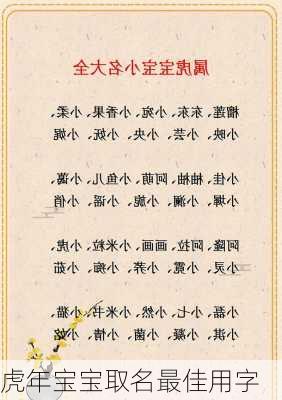 属虎宝宝小名大全
榴莲、东东、小宛、小香果、小柔、
小映、小芸、小央、小妩、小娓
小佳、柚柚、阿萌、小鱼儿、小蔼、
小墀、小澜、小脆、小谣、小俏
阿隆、阿拉、画画、小米粒、小虎、
小灵、小霓、小荞、小痴、小茹
小磊、小七、小然、小米、小猫、
小淇、小凝、小菌、小倩、小
虎年宝宝取名最佳用字